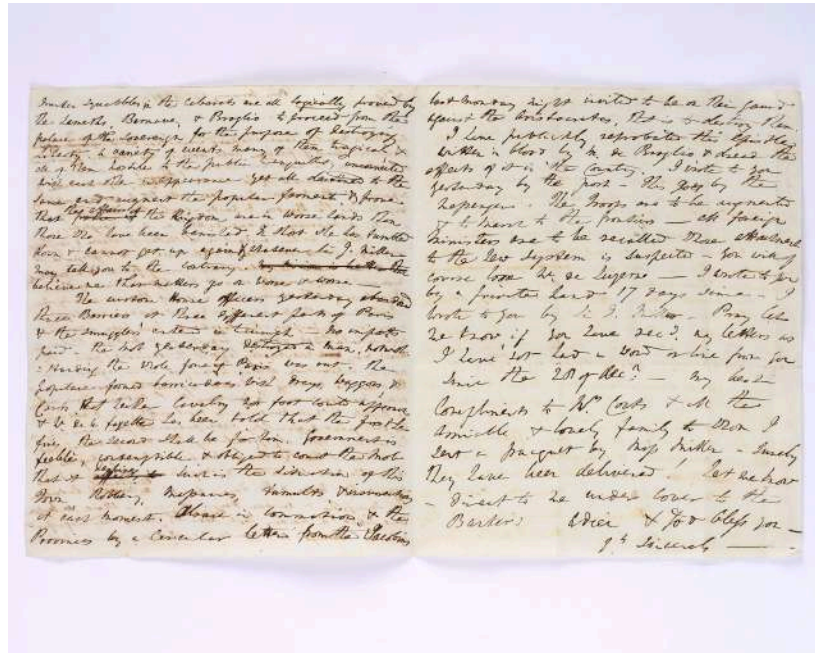 Squabbles in the Cabarets are all logically proved by
the Lameths, Barnave, & Broglio to proceed from the
palace of the Sovereign for the purpose of destroying
Liberty. A variety of events many of them tragical &
all of them hostile to the public tranquility, unconnected
with each other in appearance yet all to the
same end augment the popular ferment & prove
that the affairs of the Kingdom are in worse hands than
those
down & cannot get up again. Whatever Sr J. Miller
may tell you to the contrary
believe me that matters go on worse & worse —
The custom House officers yesterday abandoned
three Barriers at three different parts of Paris
& the smugglers entered in triumph — no imposts
paid. The mob yesterday destroyed a man, notwith
standing the whole force of Paris was out. The
populace formed barricades with drays, waggons &
Carts that neither Cavalry nor foot could approach
& M. de la Fayette has been told that the first he
fires the second shall be for him. Government is
feeble, contemptible & obliged to court the mob
that it such is the situation of this
Town Robbery, Massacres, tumults & insurrections
at each moment. Alsace in commotion, & the
Provinces by a Circular letter from the Jacobins
last Monday night invited to be on their guard
against the Aristocrates, that is to destroy them.
I have publickly reprobated this Epistle
written in blood by M. de Broglio & dread the
effects of it in the Country. I wrote to you
yesterday by the post — This goes by the
Messenger. The troops are to be augmented
& to march to the frontiers — all foreign
ministers are to be recalled whose attachment
to the new system is suspected — you will of
course lose M. de Luzerne — I wrote to you
by a private hand 17 days since — I
wrote to you by Sr J. Miller. Pray let
me know if you have recd. my letters as
I have not had a word or line from you
since the 20th of Decr. — my best
Compliments to Mrs & all the
amiable & lovely family to whom I
sent a pacquet by Miss Miller — surely
they have been delivered! Let me know
— Direct to me under cover to the
Bankers Adieu & God bless you —
Yrs Sincerely —